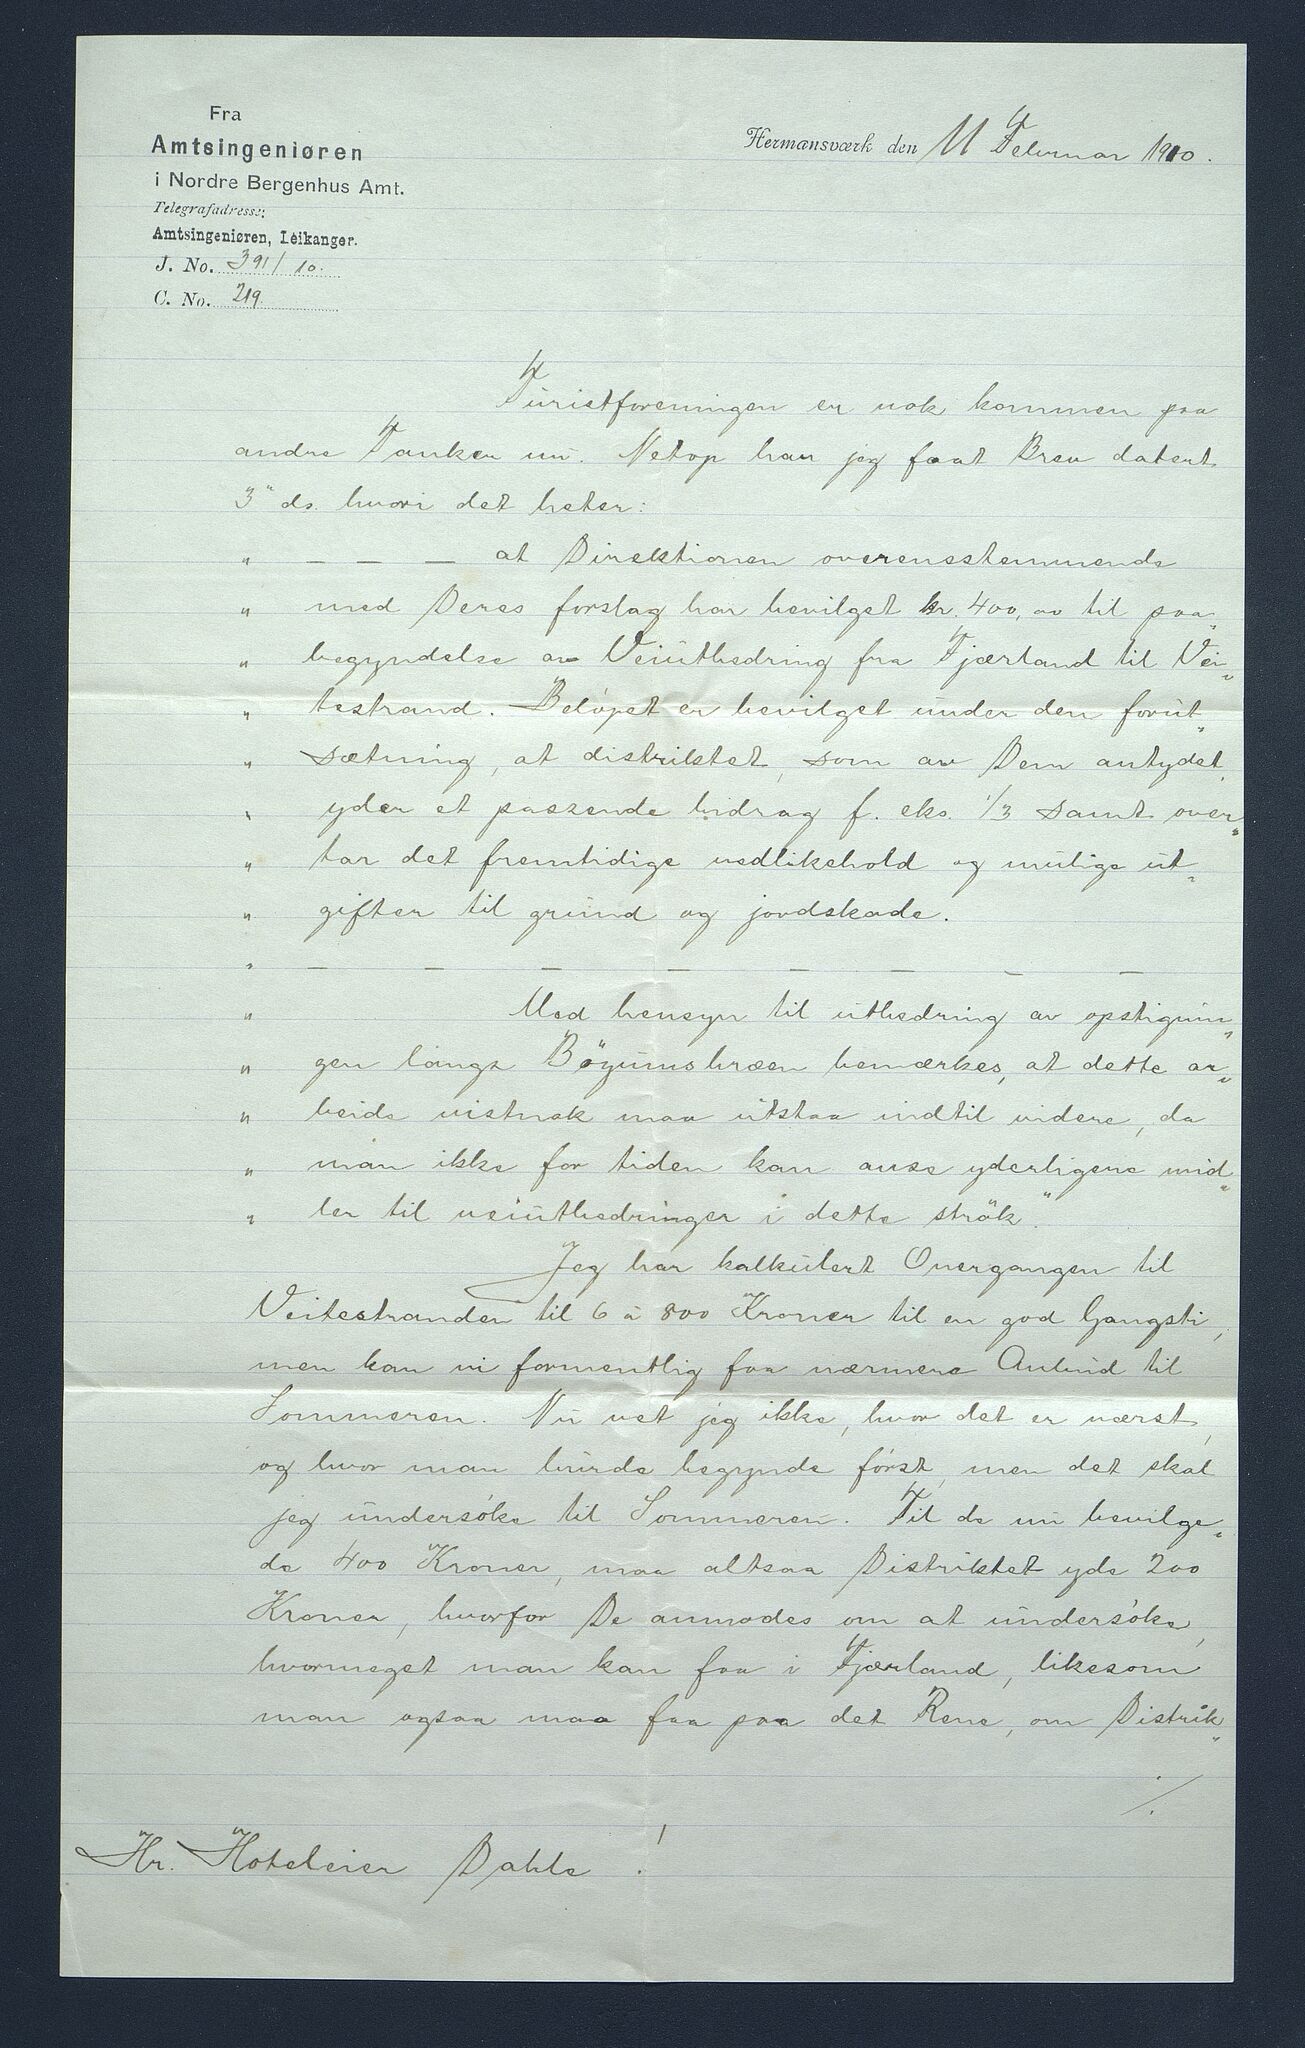 Fra
Amtsingeniøren
i Nordre Bergenhus Amt.
Telegrafadresse:
Amtsingeniøren, Leikanger.
J. No. 391/10.
C. No. 219.
Hermansværk den 11 Februar 1910.
Turistforeningen er nok kommen paa
andre Tanker nu. Netop har jeg faat Brev datert
3" ds. hvori det heter:
" — — — at Direktionen overensstemmende
" med Deres forslag har bevilget kr. 400,00 til paa-
" begyndelse av Veiutbedring fra Fjærland til Vei-
" testrand. Beløpet er bevilget under den forut-
" sætning, at distriktet, som av Dem antydet,
" yder et passende bidrag f. eks. 1/3 samt over-
" tar det fremtidige vedlikehold og mulige ut-
" gifter til grund og jordskade.
" — — — — — — — —
" Med hensyn til utbedring av opstignin-
" gen langs Bøyumsbræen bemærkes, at dette ar-
" beide vistnok maa utstaa indtil videre, da
" man ikke for tiden kan anse yderligere mid-
" ler til veiutbedringer i dette strøk".
Jeg har kalkulert Overgangen til
Veitestranden til 6 à 800 Kroner til en god Gangsti,
men kan vi formentlig faa nærmere Anbud til
Sommeren. Nu vet jeg ikke, hvor det er værst,
og hvor man burde begynde først, men det skal
jeg undersøke til Sommeren. Til de nu bevilge-
de 400 Kroner, maa altsaa Distriktet yde 200
Kroner, hvorfor De anmodes om at undersøke,
hvormeget man kan faa i Fjærland, likesom
man ogsaa maa faa paa det Rene, om Distrik-
./.
Hr. Hoteleier Dahle!